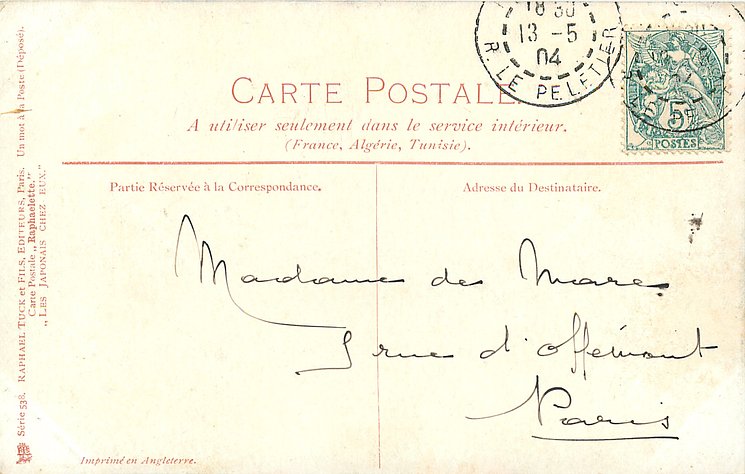 18 30
13 -5
04
R. LE PELETIER
5
POSTES
CARTE POSTALE
A utiliser seulement dans le service intérieur.
(France, Algérie, Tunisie).
Partie Réservée à la Correspondance.
Adresse du Destinataire.
Madame de Mare
5 rue d'Offémont
Paris
Imprimé en Angleterre.
Série 538. RAPHAEL TUCK et FILS, EDITEURS, Paris. Un mot à la Poste (Déposé).
Carte Postale „Raphaelette."
„LES JAPONAIS CHEZ EUX."